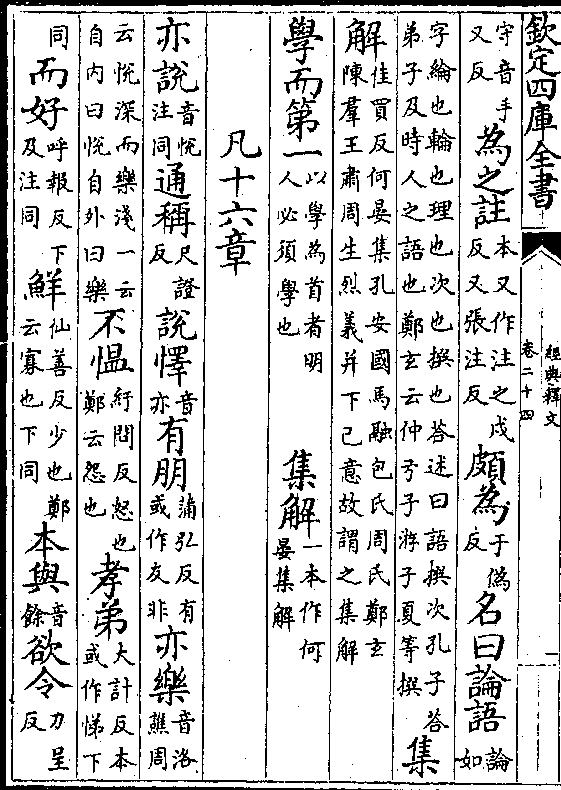 欽定四庫全書
經典釋文
卷二十四
守音手又反為之註本又作注之戍反又張注反頗為于偽反名曰論語論如
字綸也輪也理也次也撰也荅述曰語撰次孔子荅弟子及時人之語也鄭玄云仲弓子游子夏等撰集
解佳買反何晏集孔安國馬融包氏周氏鄭玄陳羣王肅周生烈義并下己意故謂之集解
學而第一以學為首者明人必須學也 集解一本作何晏集解
凡十六章
亦說音悅注同通稱尺證反說懌音亦有朋蒲弘反有或作友非亦樂音洛譙周
云悅深而樂淺一云自內曰悅自外曰樂不慍紆問反怒也鄭云怨也孝弟大計反本或作悌下
同而好呼報反下及注同鮮仙善反少也鄭云寡也下同本與音餘欲令力呈反